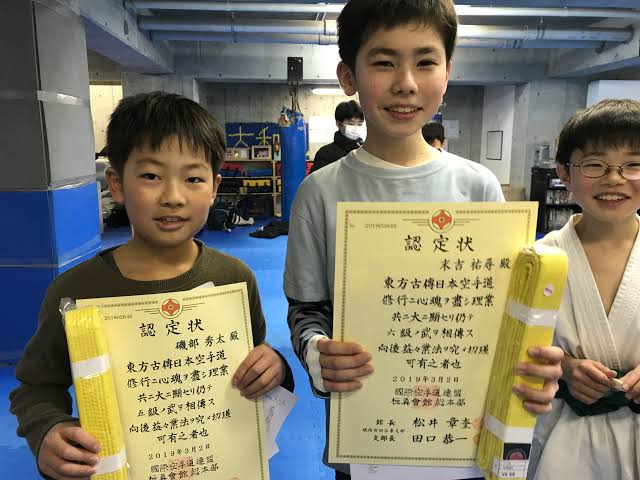 大和
2019020548
認定状
磯部 秀太 殿
東方古傳日本空手道
修行ニ心魂ヲ盡シ理業
共ニ大ニ顯セリ仍テ
五級ノ武ヲ相傳ス
向後益々業法ヲ究メ切瑳
可有之者也
2019年3月2日
國際空手道連盟
極真會館総本部
No. 2019020568
認定状
末吉 祐尋 殿
東方古傳日本空手道
修行ニ心魂ヲ盡シ理業
共ニ大ニ顯セリ仍テ
六級ノ武ヲ相傳ス
向後益々業法ヲ究メ切瑳
可有之者也
2019年3月2日
國際空手道連盟
極真會館総本部
館長 松井 章奎
支部長 田口 恭一